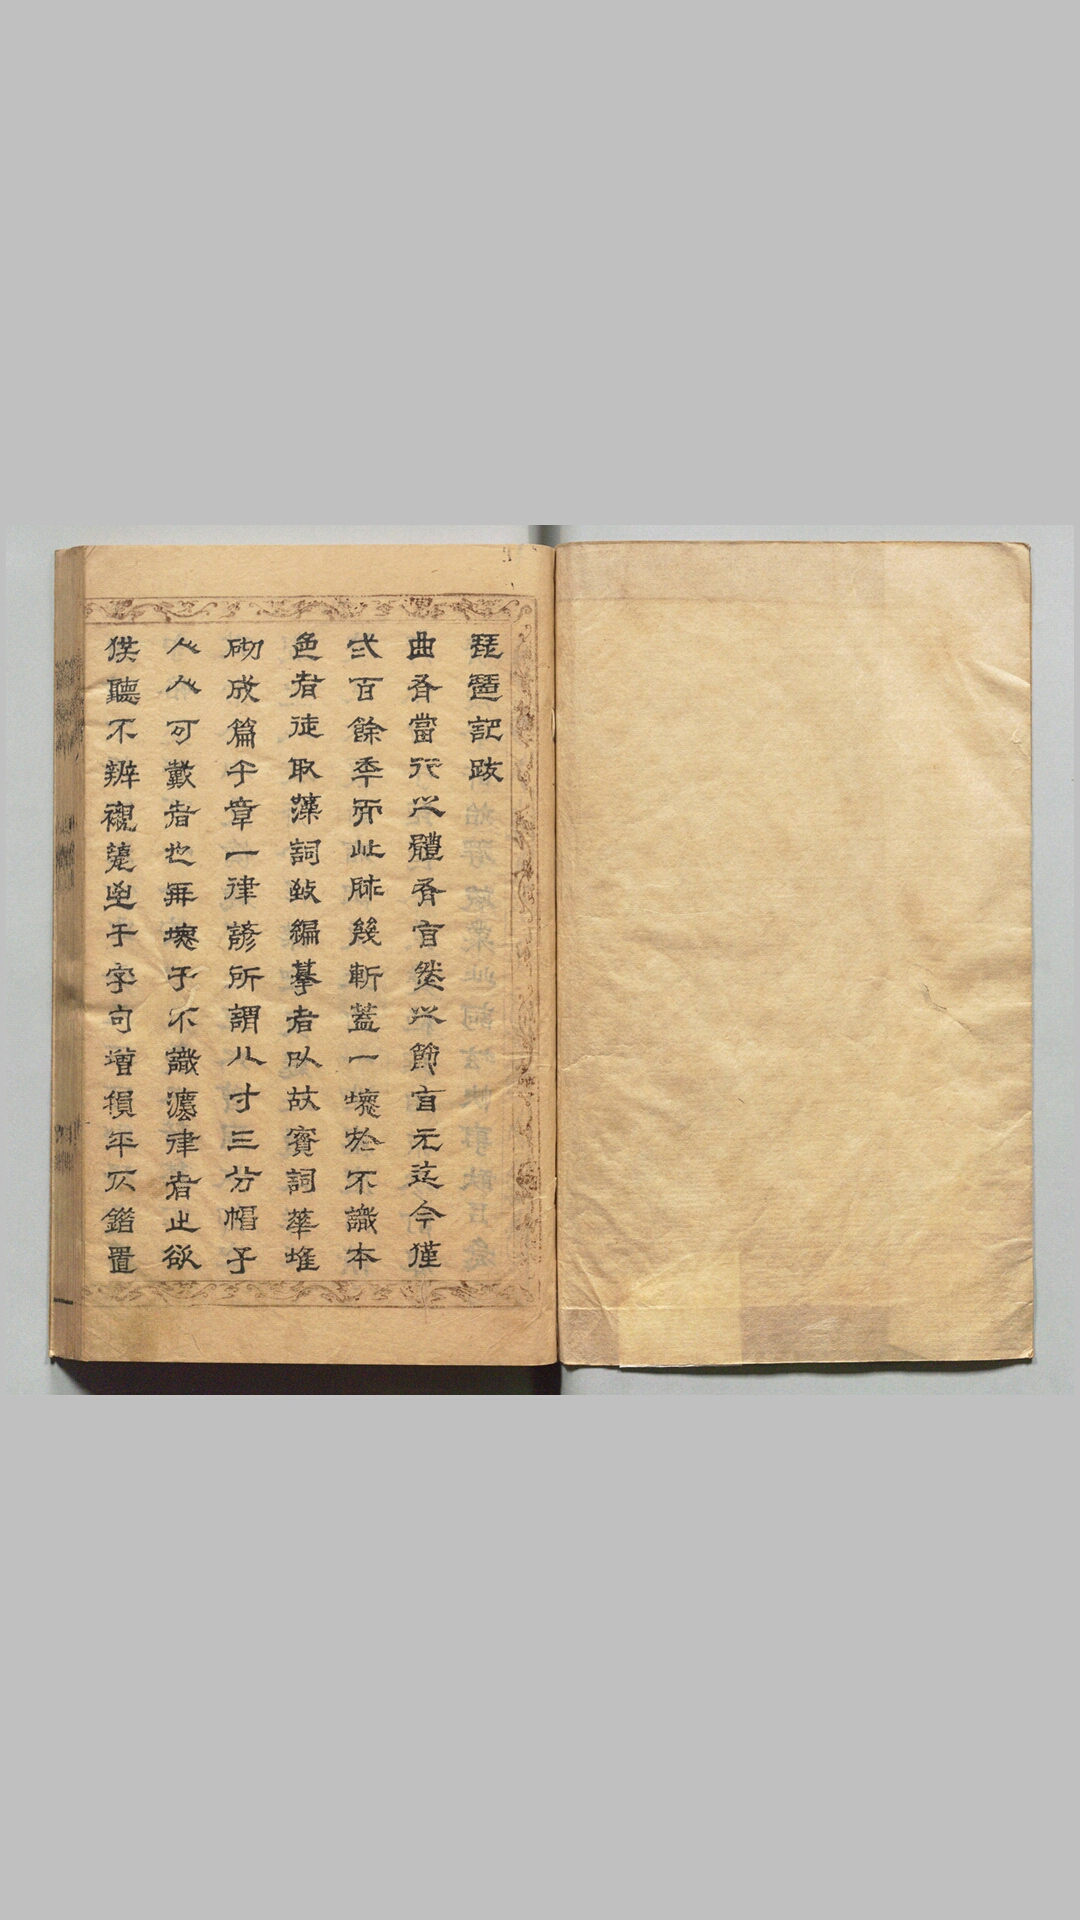 琵琶記跋
曲有當行之體有自然之節自元迄今僅
弍百餘季而此脉幾斬蓋一壞於不識本
色者徒取藻詞敍編摹者以故實詞華堆
砌成篇千章一律諺所謂八寸三分帽子
人人可戴者也再壞于不識灋律者止欲
矦聽不辨襯㐫于字句增損平仄錯置